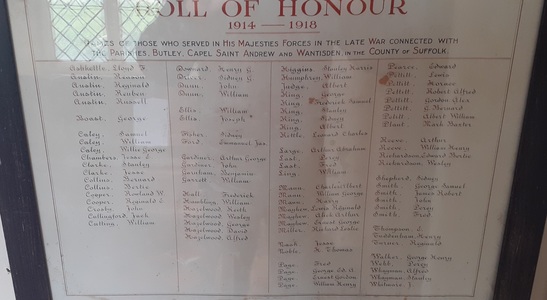 ROLL OF HONOUR
1914 — 1918
NAMES OF THOSE WHO SERVED IN HIS MAJESTIES FORCES IN THE LATE WAR CONNECTED WITH
THE PARISHES, BUTLEY, CAPEL SAINT ANDREW AND WANTISDEN IN THE COUNTY OF SUFFOLK.
Lloyd F
Austin,
Austin, Reginald
Austin, Reuben
Austin, Russell
George
Caley, Samuel
Caley, William
Caley, Willis George
Chambers, Jesse J
Clarke, Stanley
Clarke, James
Collins, Bernard
Collins, Bertie
Cooper, Rowland W.
Cooper, Reginald E
John
Cullingford, Jack
Cutting, William
Henry G
Sidney G
Dunn, John
Dunn, William
Ellis William
Ellis, Joseph
Fisher, Sidney
Ford, Emmanuel Jas.
Gardner, Arthur George
Gardner, John
Benjamin
Garrett, William
Hall, Frederick
William
Hazelwood, Keith
Hazelwood, Wesley
Hazelwood, George
Hazelwood, David
Hazelwood, Alfred
Higgins, Stanley Harris
Humphrey, William
Judge, Albert
King, George
King, Frederick Samuel
King, Stanley
King, Sidney
King, Albert
Kittle, Samuel Charles
Large, Arthur Abraham
Last, Percy
Last, Fred
Ling, William
Mann, Charles Albert
Mann, William
Mann, Harry
Mayhew, Lewis Reginald
Mayhew, Alick Arthur
Mayhew, Ernest George
Miller, Herbert Leslie
Nash, Jesse
Noble, H. Thomas
Page, Fred
Page, George Ed. A.
Page, Ernest Gordon
Page, William Henry
Pearce, Edward
Pettit, Lewis
Pettit, Horace
Pettit, Robert Alfred
Pettit, Gordon Alex
Pettit, G Bernard
Pettit, Albert William
Plant, Mark Baxter
Reeve, Arthur
Reeve, William Henry
Richardson, Edward Bertie
Richardson, Wesley
Shepherd, Sidney
Smith, George Samuel
Smith, James Robert
Smith, John
Smith, Percy
Smith, Fred.
Thompson, E.
Tuddenham, Henry
Turner, Reginald
Walker, George Henry
Webb, Percy
Whayman, Alfred
Whayman, Stanley
J.